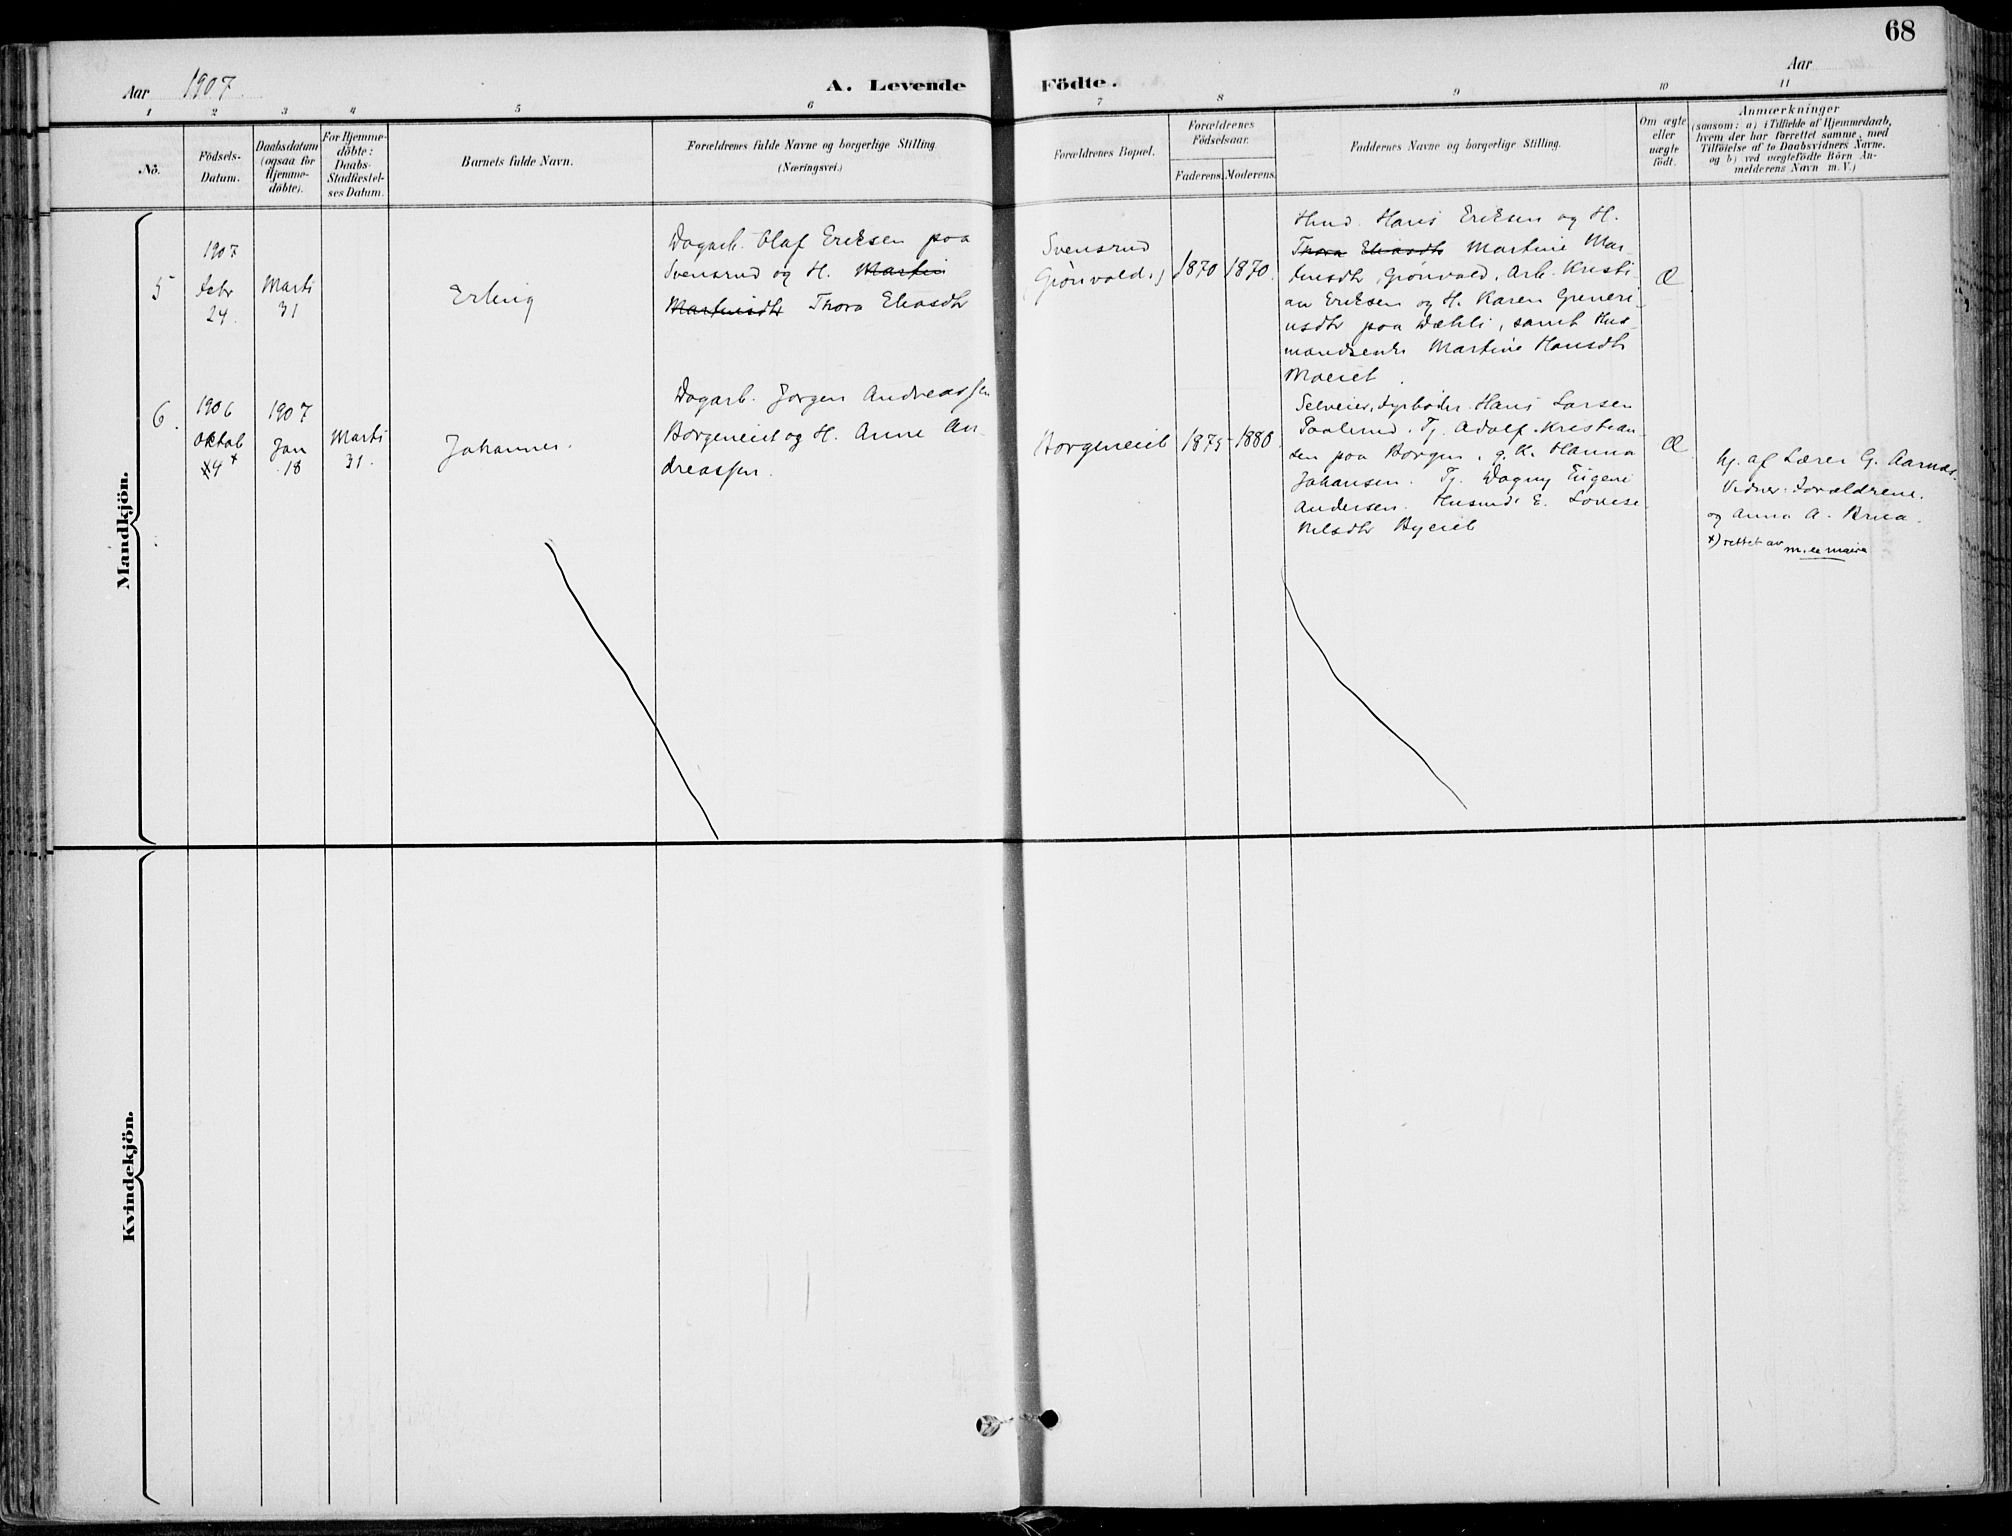 68
Aar 1907.
A. Levende Födte.
Aar
1 2 3 4 5 6 7 8 9 10 11
No.
Födsels-
Datum.
Daabsdatum
(ogsaa for
Hjemme-
döbte).
For Hjemme-
döbte:
Daabs-
Stadfæstel-
ses Datum.
Barnets fulde Navn.
Forældrenes fulde Navne og borgerlige Stilling.
(Næringsvei.)
Forældrenes Bopæl.
Forældrenes
Födselsaar.
Faderens. Moderens.
Faddernes Navne og borgerlige Stilling.
Om ægte
eller
uægte
födt.
Anmærkninger
(saasom: a) i Tilfælde af Hjemmedaab,
hvem der har forrettet samme, med
Tilföielse af to Daabsvidners Navne,
og b) ved uægtefödte Börn An-
melderens Navn m. V.)
Mandkjön.
5
1907
Febr
24.
Marts
31
Erling
Dagarb. Olaf Eriksen paa
Svensrud og H. Martin
Martinsdtr Thora Eliasdtr
Svensrud
(Grönvold,)
1870 1870.
Hmd. Hans Eriksen og H.
Thora Eliasdtr Martine Mar-
tinsdtr, Grönvold, Arb. Kristi-
an Eriksen og H. Karen Greneri-
usdtr paa Dæhli, samt Hus-
mandsenke Martine Hansdtr
Moeiet.
Æ
6.
1906
Oktob
24 x
1907
Jan
18
Marts
31.
Johannes.
Dagarb. Jörgen Andreassen
Borgeneiet og H. Anne An-
dreassen.
Borgeneiet
1875 1880.
Selveier, Fyrböder Hans Larsen
Paalsrud. Tj. Adolf Kristian-
sen paa Borgen, g. K. Hanna
Johansen. Tj. Dagny Eugeni
Andersen. E. Lovise
Nilsdtr Byeiet
Æ
Hj. af Lærer G. Aarnæs
Vidner: Forældrene.
og Anna A. Brua.
x) rettet av
Kvindekjön.